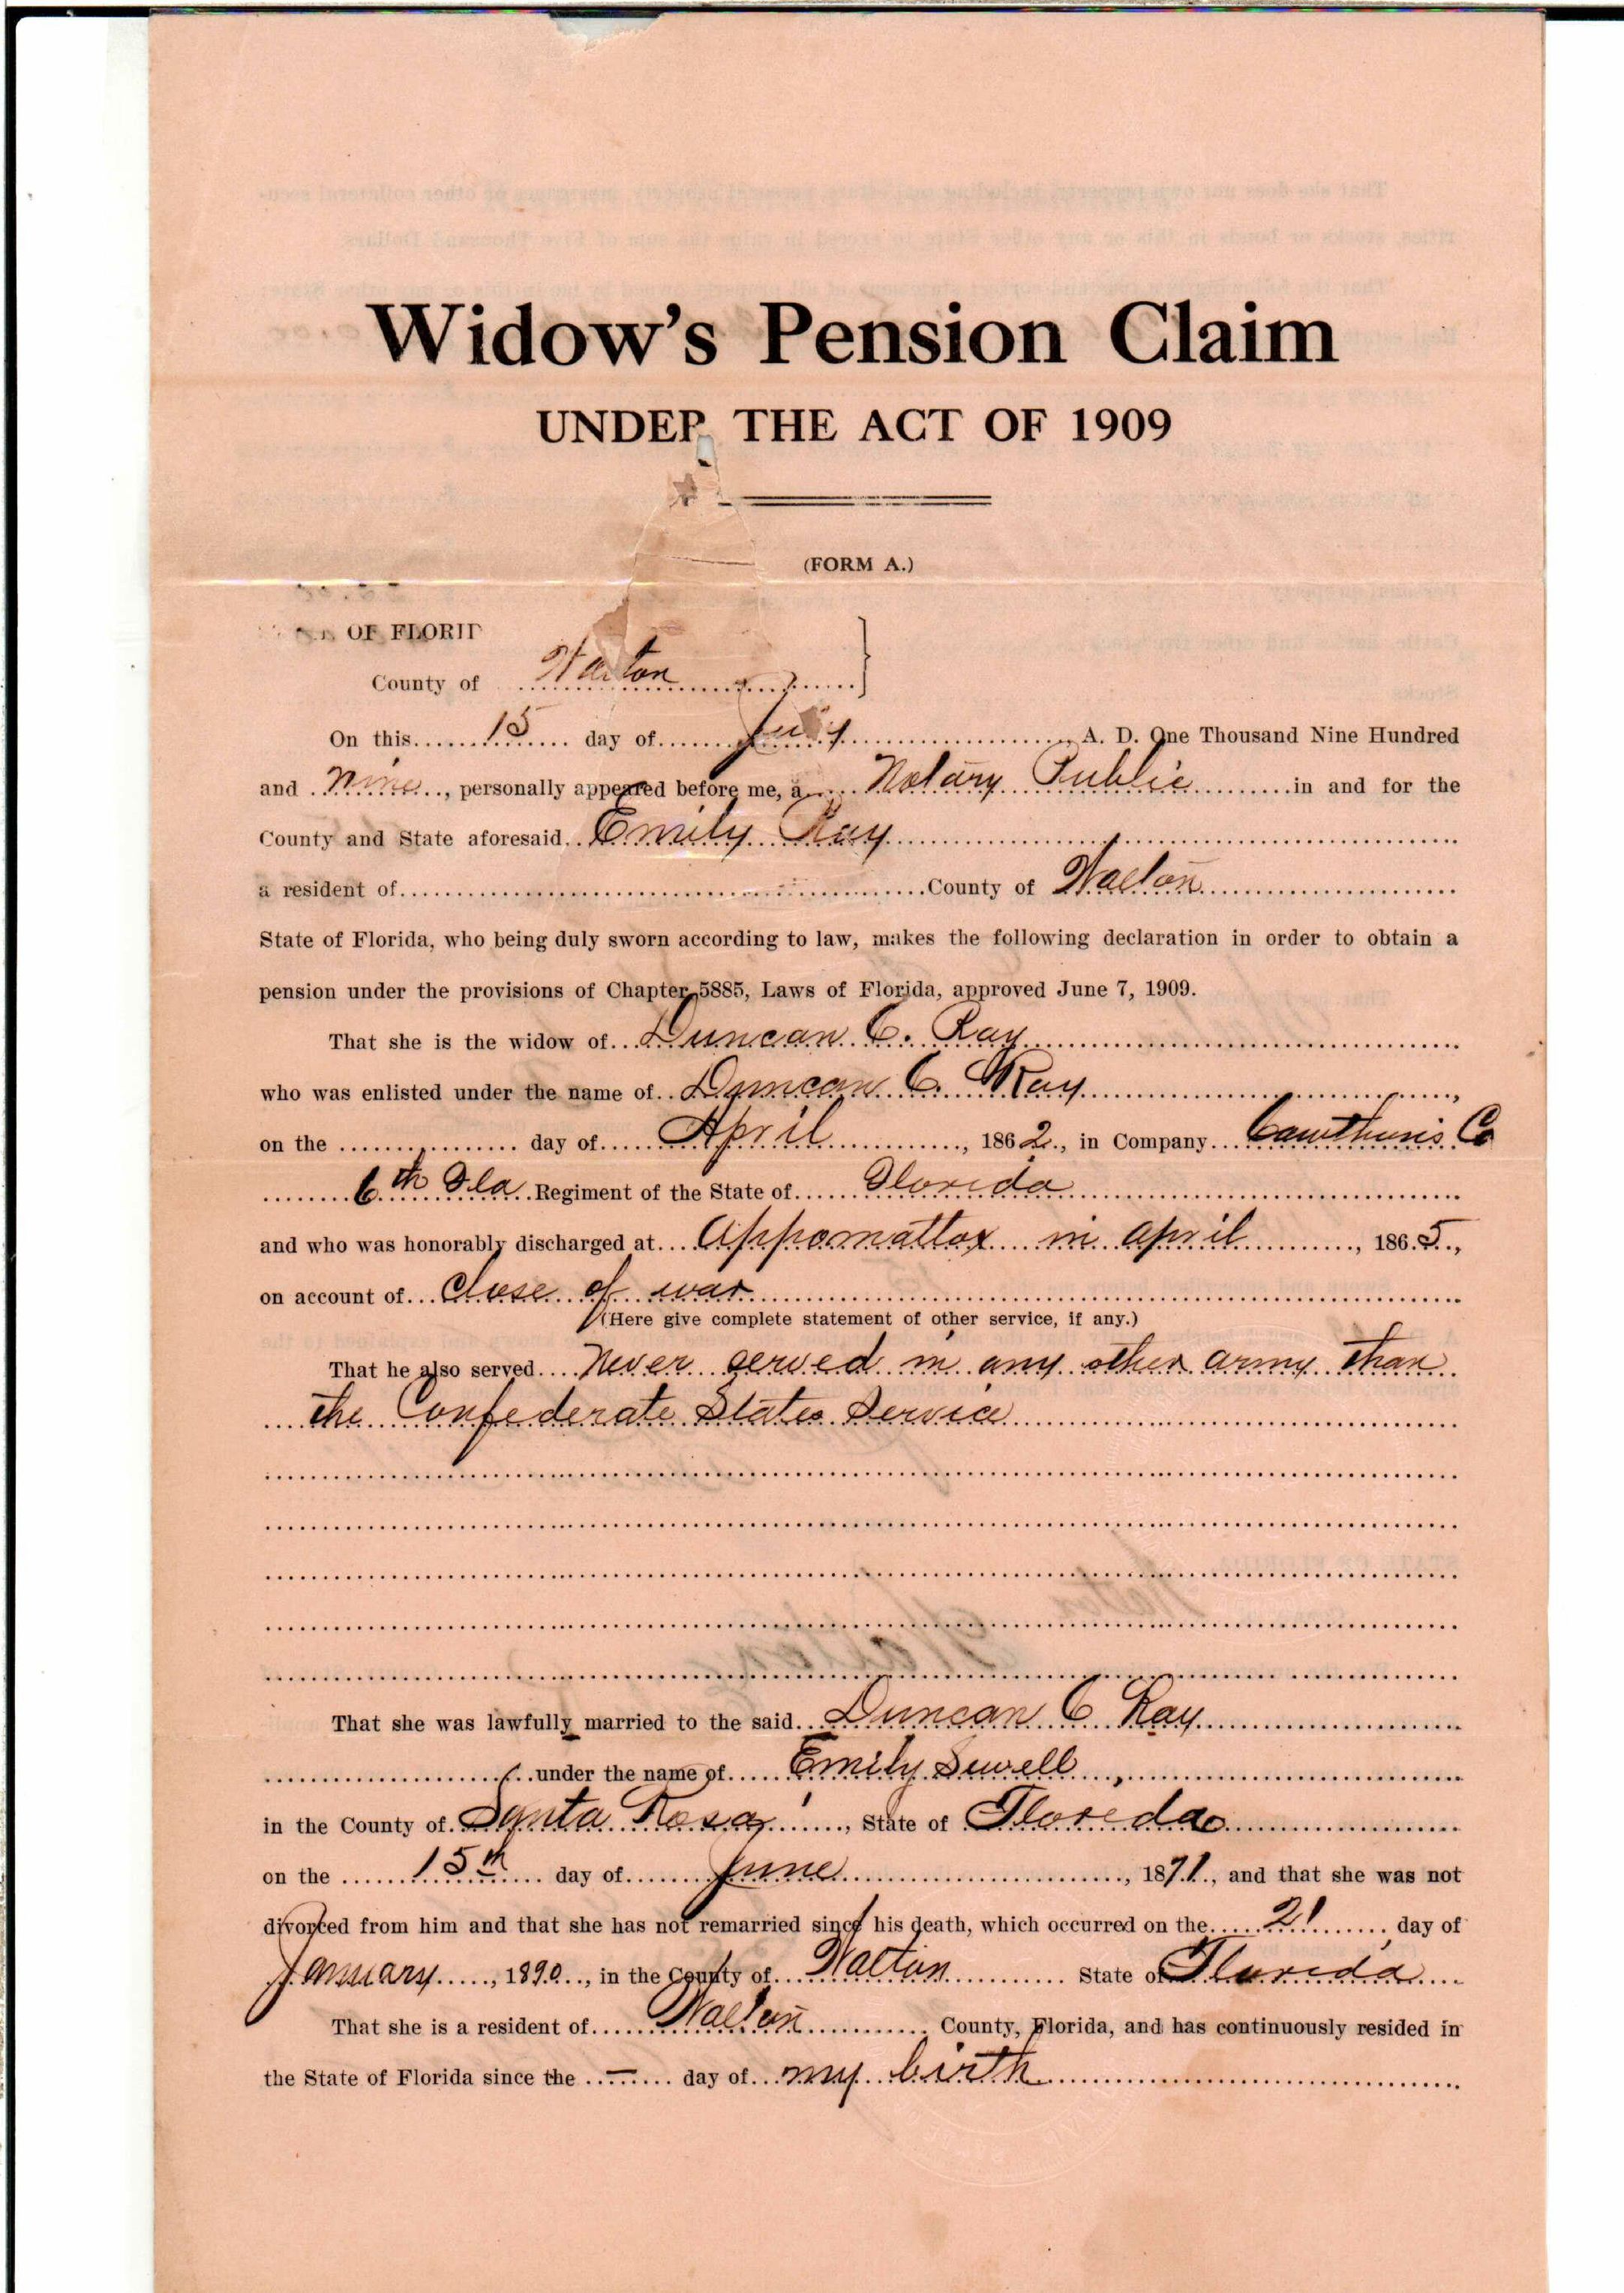 Widow's Pension Claim
UNDER THE ACT OF 1909
(FORM A.)
OF FLORI
County of Walton
On this 15 day of July A. D. One Thousand Nine Hundred
and nine, personally appeared before me, a Notary Public in and for the
County and State aforesaid Emily Ray
a resident of County of Walton
State of Florida, who being duly sworn according to law, makes the following declaration in order to obtain a
pension under the provisions of Chapter 5885, Laws of Florida, approved June 7, 1909.
That she is the widow of Duncan C. Ray
who was enlisted under the name of Duncan C. Ray,
on the day of April, 1862, in Company Cawthon's Co
6th Fla Regiment of the State of Florida
and who was honorably discharged at Appomattox in April, 1865,
on account of Close of war
(Here give complete statement of other service, if any.)
That he also served Never served in any other army than
the Confederate States Service
That she was lawfully married to the said Duncan C Ray
under the name of Emily Sewell,
in the County of Santa Rosa, State of Florida
on the 15th day of June, 1871, and that she was not
divorced from him and that she has not remarried since his death, which occurred on the 21 day of
January, 1890, in the County of Walton State of Florida
That she is a resident of Walton County, Florida, and has continuously resided in
the State of Florida since the — day of my birth